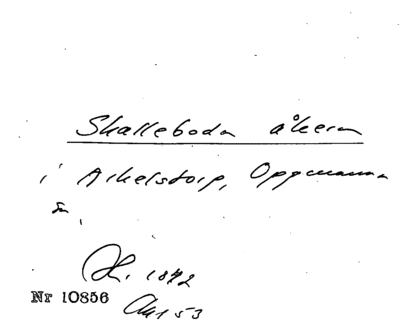 Skalleboda åkern
i Arkelstorp, Oppmanna
sn.
H. 1872
Nr 10856